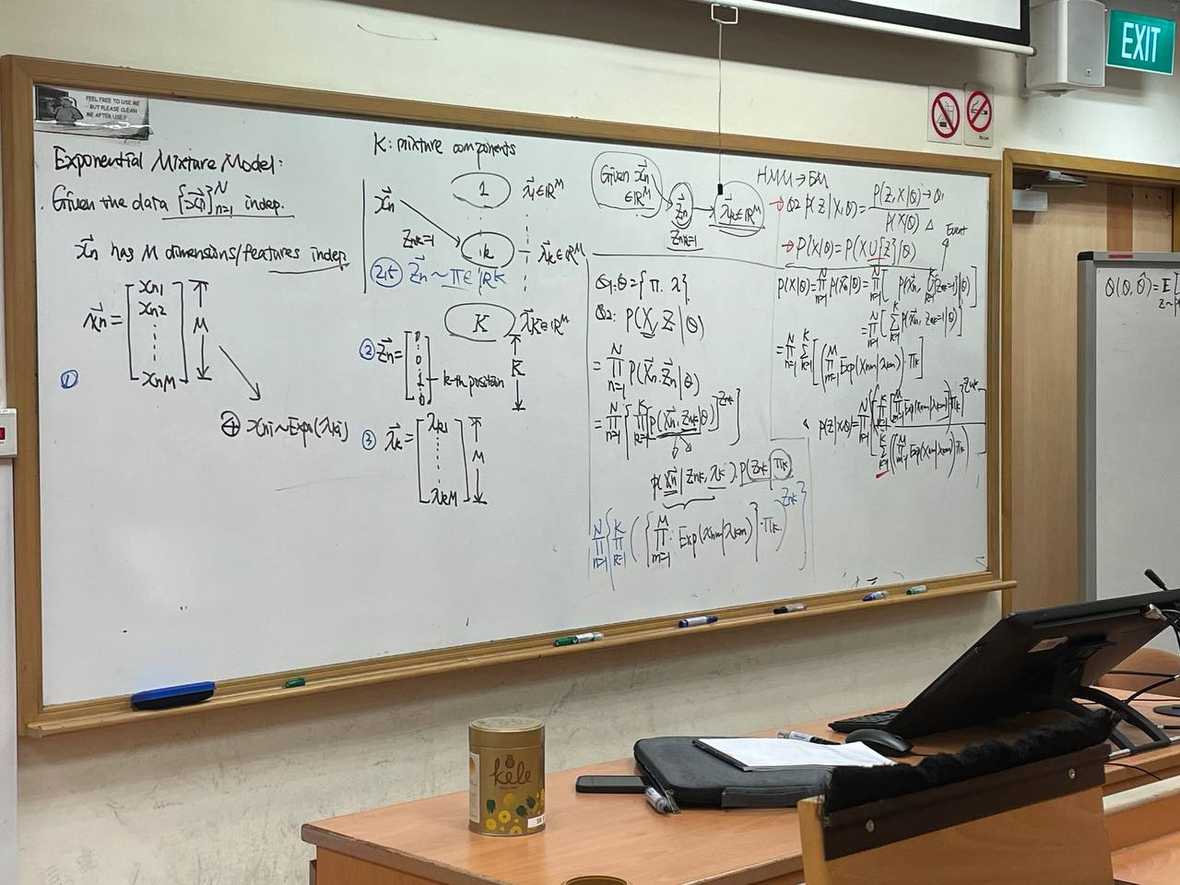 FEEL FREE TO USE ME
BUT PLEASE CLEAN
ME AFTER USE!
Exponential Mixture Model:
Given the data {x⃗n}ᴺₙ₌₁ indep.
x⃗n has M dimensions/features indep.
x⃗n = [xn1
xn2
⋮
xnM] M
①
④ xni ~ Exp(λki)
K: mixture components
1 λ⃗1 ∈ ℝᴹ
x⃗n
Znk=1
k λ⃗k ∈ ℝᴹ
②.5 Z⃗n ~ π ∈ ℝᴷ
K λ⃗K ∈ ℝᴹ
② Z⃗n = [0
0
1
0] k-th position K
③ λ⃗k = [λk1
⋮
λkM] M
Given x⃗n
∈ ℝᴹ
Z⃗n
λ⃗k ∈ ℝᴹ
Znk=1
Q1: θ = {π, λ}
Q2: P(X, Z|θ)
= ∏ᴺₙ₌₁ P(x⃗n, Z⃗n|θ)
= ∏ᴺₙ₌₁ { ∏ᴷₖ₌₁ [P(x⃗n, Znk|θ)]^Znk }
P(x⃗n|Znk, λk) · P(Znk|πk)
∏ᴺₙ₌₁ { ∏ᴷₖ₌₁ ( { ∏ᴹₘ₌₁ Exp(xnm|λkm) } · πk )^Znk }
HMM → EM
→ Q2 P(Z|X,θ) = P(Z,X|θ) → Q1 / P(X|θ) △
Event
→ P(X|θ) = P(X ∪{Z}|θ)
P(X|θ) = ∏ᴺₙ₌₁ P(x⃗n|θ) = ∏ᴺₙ₌₁ [P(x⃗n, ∪ᴷₖ₌₁{Znk=1}|θ)]
= ∏ᴺₙ₌₁ [∑ᴷₖ₌₁ P(x⃗n, Znk=1|θ)]
= ∏ᴺₙ₌₁ ∑ᴷₖ₌₁ [(∏ᴹₘ₌₁ Exp(xnm|λkm)) · πk]
P(Z|X,θ) = ∏ᴺₙ₌₁ { ∏ᴷₖ₌₁ [[∏ᴹₘ₌₁ Exp(xnm|λkm)] · πk]^Znk / ∑ᴷₖ₌₁ ((∏ᴹₘ₌₁ Exp(xnm|λkm)) πk) }
Q(θ, θ̂) = E[
z~p
EXIT
kele